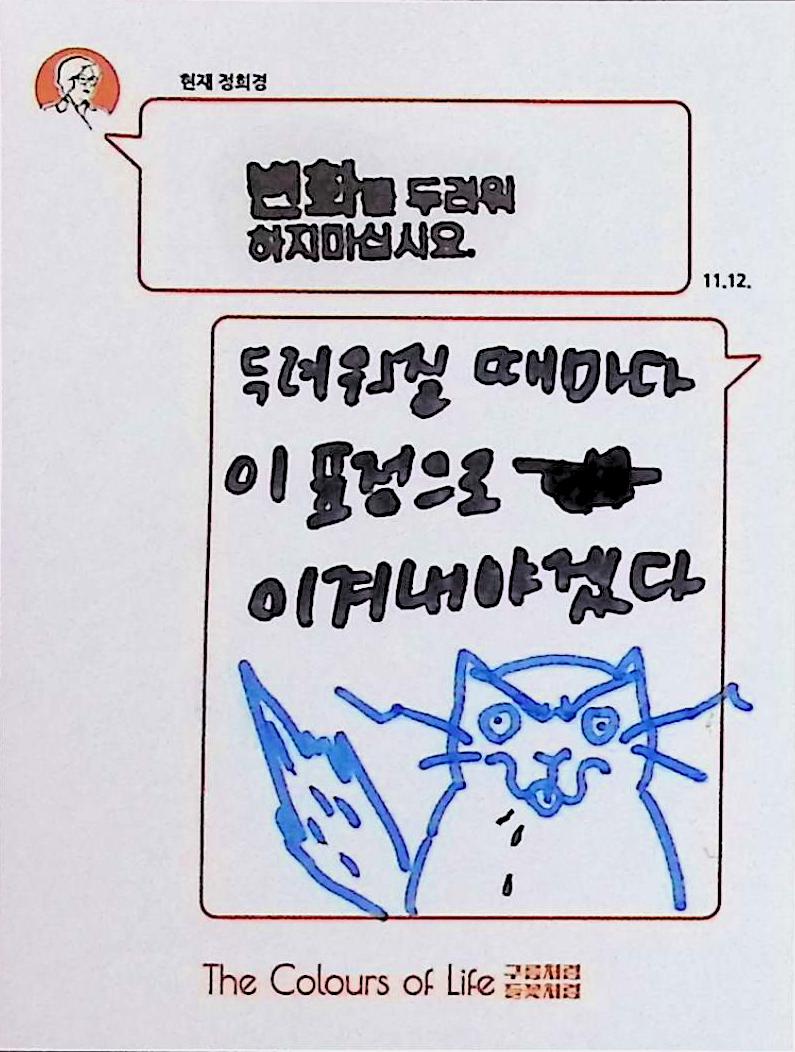 현재 정희경
변화를 두려워
하지마십시요.
11.12.
두려워질 때마다
이 표정으로
이겨내야겠다
The Colours of Life 구름처럼
들꽃처럼